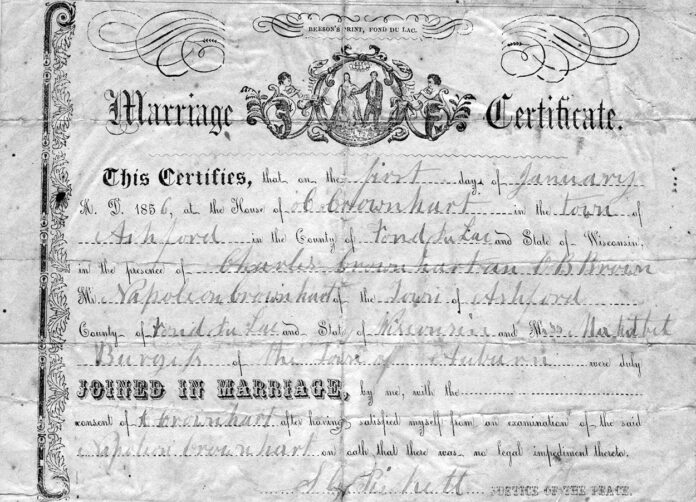 BEESON'S PRINT, FOND DU LAC.
Marriage Certificate.
This Certifies, that on the first day of January
A. D. 1856, at the House of C Crownhart in the town of
Ashford in the County of Fond du Lac and State of Wisconsin,
in the presence of Charles Crownhart an O B Brown
Mr Napoleon Crownhart of the Town of Ashford
County of Fond du Lac and State of Wisconsin and Miss
Burgess of the Town of Auburn were duly
JOINED IN MARRIAGE, by me, with the
consent of Crownhart after having satisfied myself from an examination of the said
Napoleon Crownhart on oath that there was no legal impediment thereto.
JUSTICE OF THE PEACE.